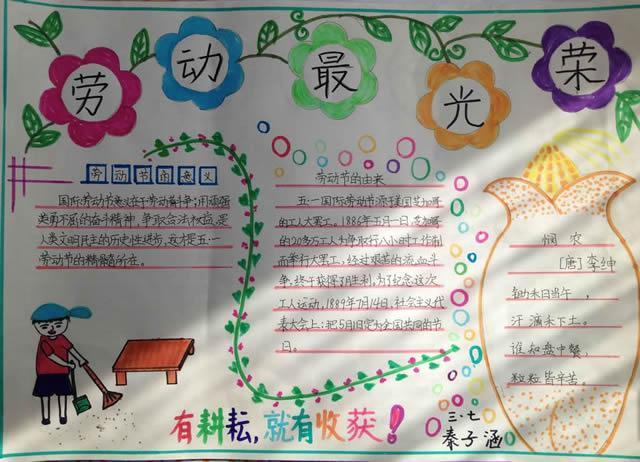 劳动最光荣
劳动节的意义
国际劳动节意义在于劳动奋斗,用顽强
英勇不屈的奋斗精神,争取合法权益,是
人类文明民主的历史性进步,这才是五一
劳动节的精髓所在。
劳动节的由来
五一国际劳动节源于美国芝加哥
的工人大罢工。1886年五月一日,芝加哥
的20多万工人为争取行八小时工作制
而举行大罢工,经过艰苦的流血斗
争,终于获得了胜利,为了纪念这次
工人运动,1889年7月14日,社会主义代
表大会上:把5月1日定为全国共同的节
日。
悯农
[唐]李绅
锄禾日当午,
汗滴禾下土。
谁知盘中餐,
粒粒皆辛苦。
有耕耘,就有收获!
三·七
秦子涵